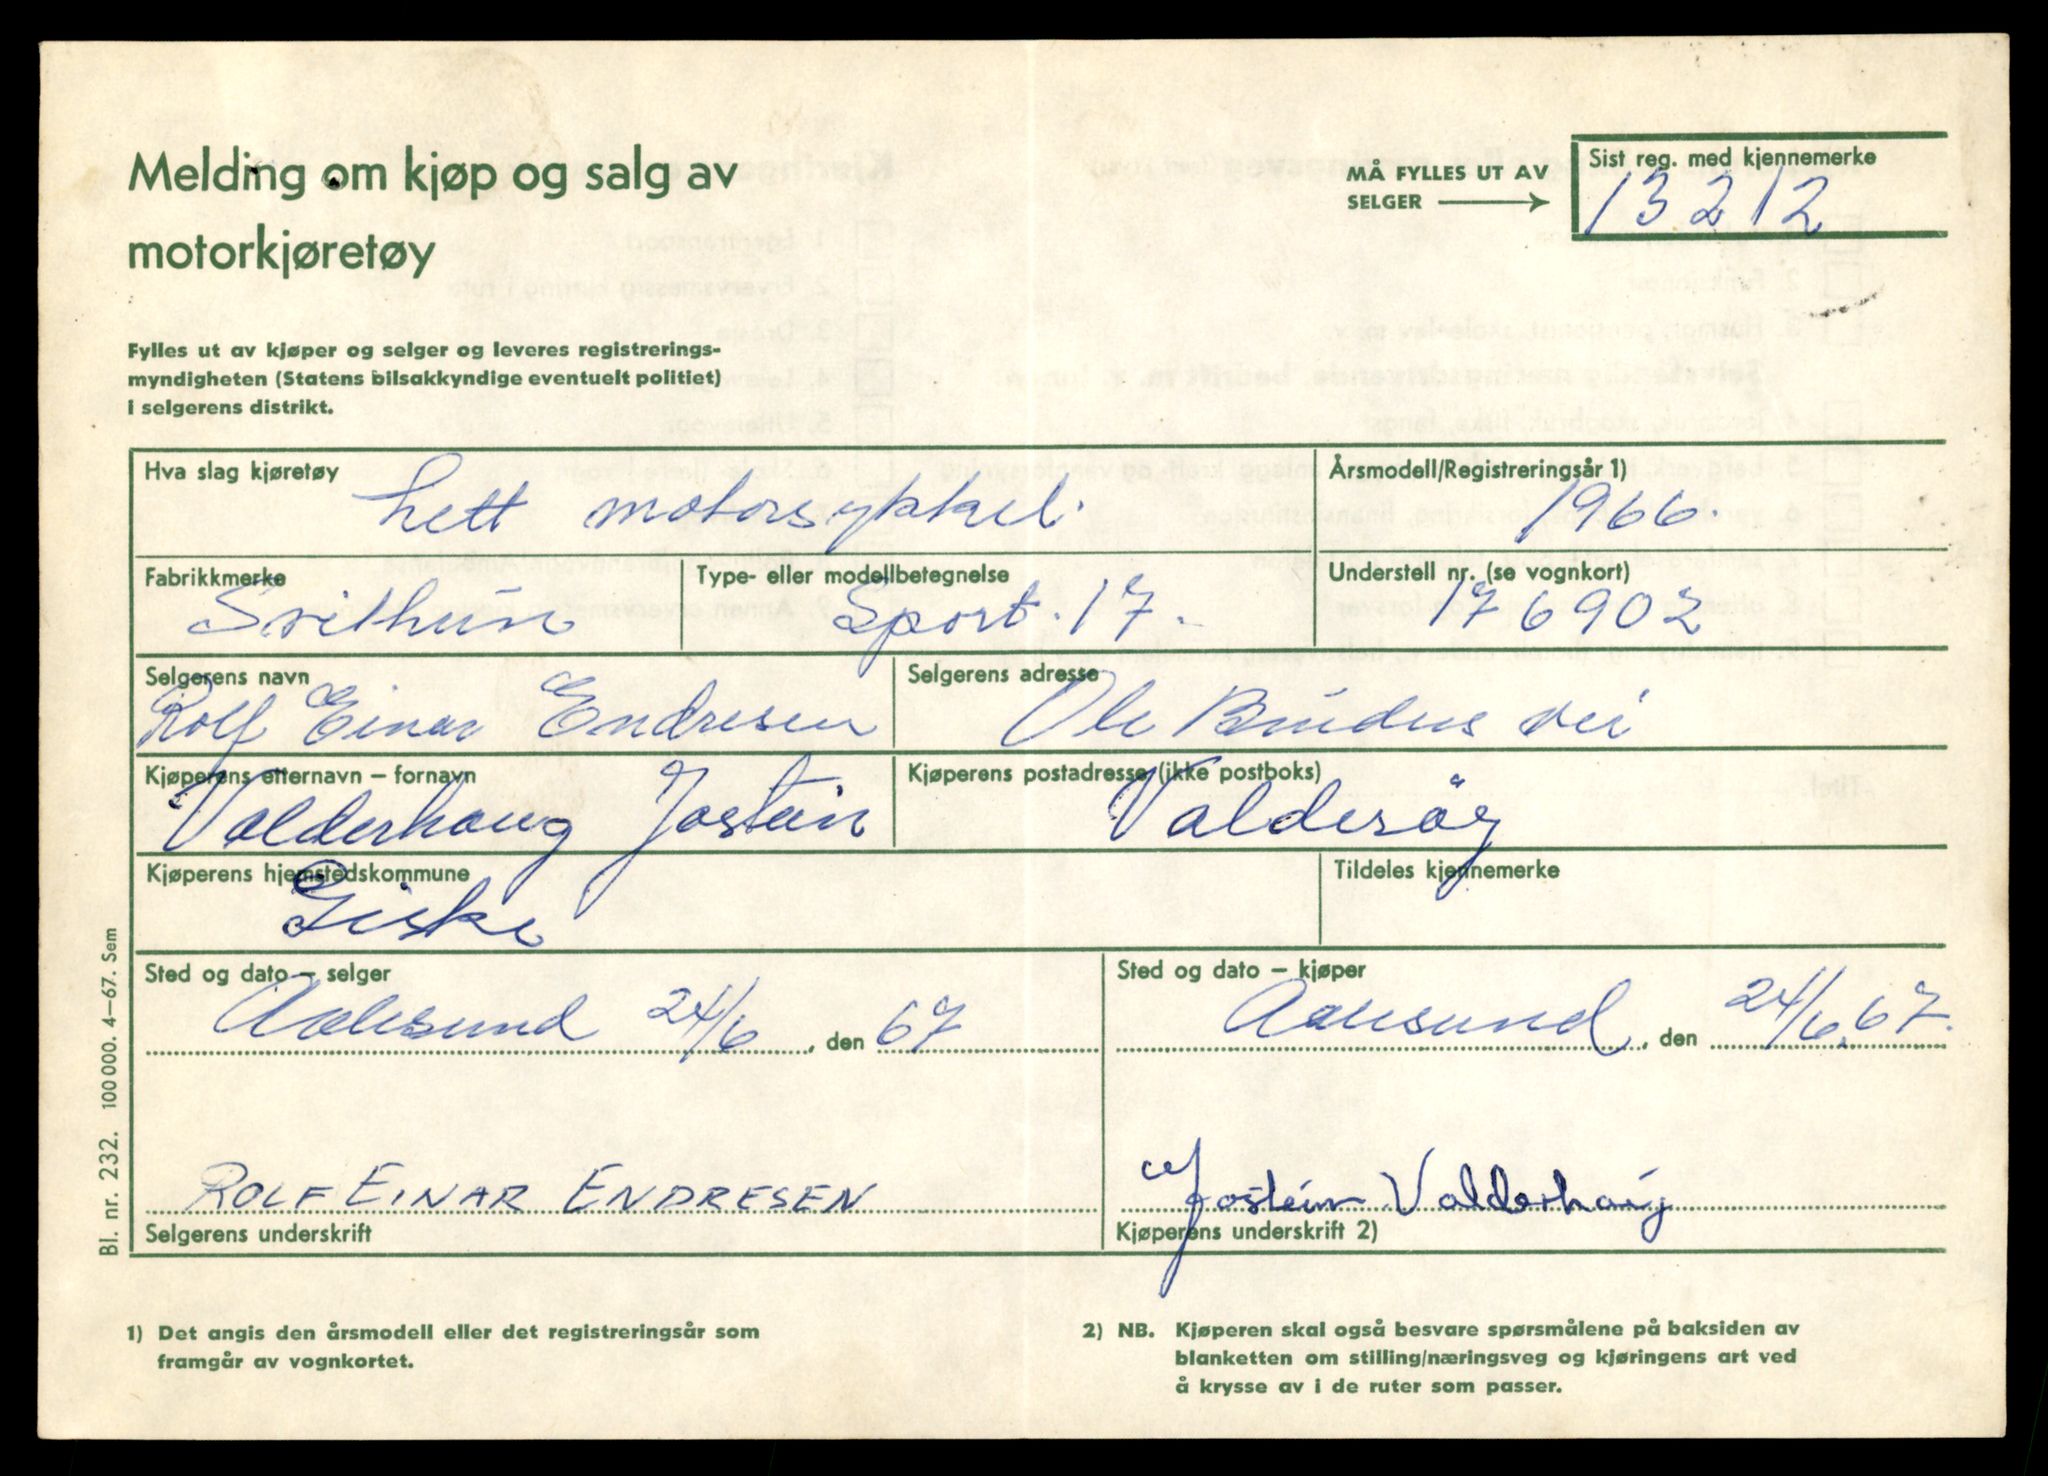 Melding om kjøp og salg av
motorkjøretøy
MÅ FYLLES UT AV
SELGER
Sist reg. med kjennemerke
13212
Fylles ut av kjøper og selger og leveres registrerings-
myndigheten (Statens bilsakkyndige eventuelt politiet)
i selgerens distrikt.
Hva slag kjøretøy
Lett motorsykkel.
Årsmodell/Registreringsår 1)
1966.
Fabrikkmerke
Svithun
Type- eller modellbetegnelse
Sport. 17.
Understell nr. (se vognkort)
176902
Selgerens navn
Rolf Einar Endresen
Selgerens adresse
Ole vei
Kjøperens etternavn – fornavn
Valderhaug Jostein
Kjøperens postadresse (ikke postboks)
Valderöy
Kjøperens hjemstedskommune
Giske
Tildeles kjennemerke
Sted og dato – selger
Aalesund 24/6, den 67
Sted og dato – kjøper
Aalesund, den 24/6.67.
ROLF EINAR ENDRESEN
Selgerens underskrift
Jostein Valderhaug
Kjøperens underskrift 2)
Bl. nr. 232. 100 000. 4–67. Sem
1) Det angis den årsmodell eller det registreringsår som
framgår av vognkortet.
2) NB. Kjøperen skal også besvare spørsmålene på baksiden av
blanketten om stilling/næringsveg og kjøringens art ved
å krysse av i de ruter som passer.